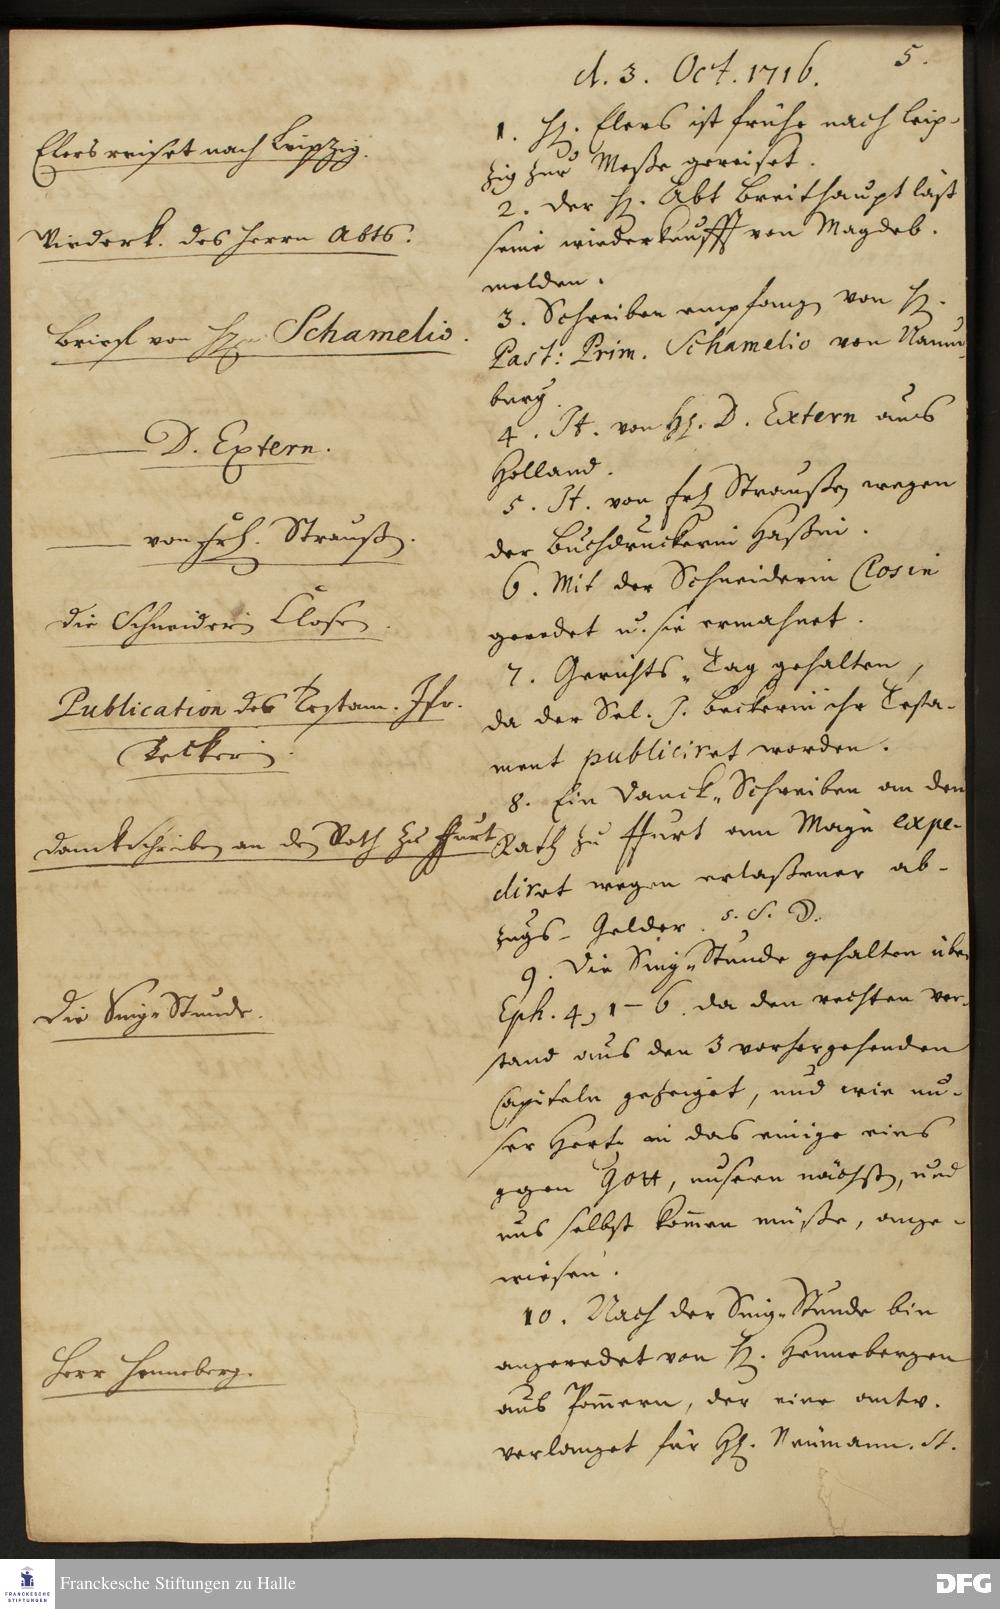 5.
d. 3. Oct. 1716.
Elers reiset nach Leipzig.
1. H. Elers ist frühe nach Leip-
zig zur Meße gereiset.
Wiederk. des Herrn Abts.
2. Der H. Abt Breithaupt läst
seine wiederkunfft von Magdeb.
melden.
Brieff von Hn. Schamelio.
3. Schreiben empfangen von H.
Past: Prim. Schamelio von Naum-
burg.
D. Extern.
4. It. von H. D. Extern aus
Holland.
von Frl. Strauß.
5. It. von Frl. Straußen wegen
der Buchdruckerin Haßin.
die Schneiderin Closin.
6. Mit der Schneiderin Closin
geredet u. sie ermahnet.
Publication des Testam. Jfr.
Beckerin.
7. Gerichts-Tag gehalten,
da der Sel. J. Beckerin ihr Testa-
ment publiciret worden.
danckschreiben an den Rath zu Ffurt
8. Ein Danck-Schreiben an den
Rath zu Ffurt am Mayn expe-
diret wegen erlaßener ab-
zugs-Gelder. s. d. D.
Die Sing-Stunde.
9. Die Sing-Stunde gehalten über
Eph. 4, 1-6. da den rechten ver-
stand aus den 3 vorhergehenden
Capiteln gezeiget, und wie un-
ser Hertz in das einige eins
gegen Gott, unsern nächsten, und
uns selbst kommen müße, ange-
wiesen.
Herr Henneberg.
10. Nach der Sing-Stunde bin
angeredet von H. Hennebergen
aus Pommern, der eine antw.
verlanget für H. Neumann. St.
Franckesche Stiftungen zu Halle
FRANCKESCHE
STIFTUNGEN
DFG